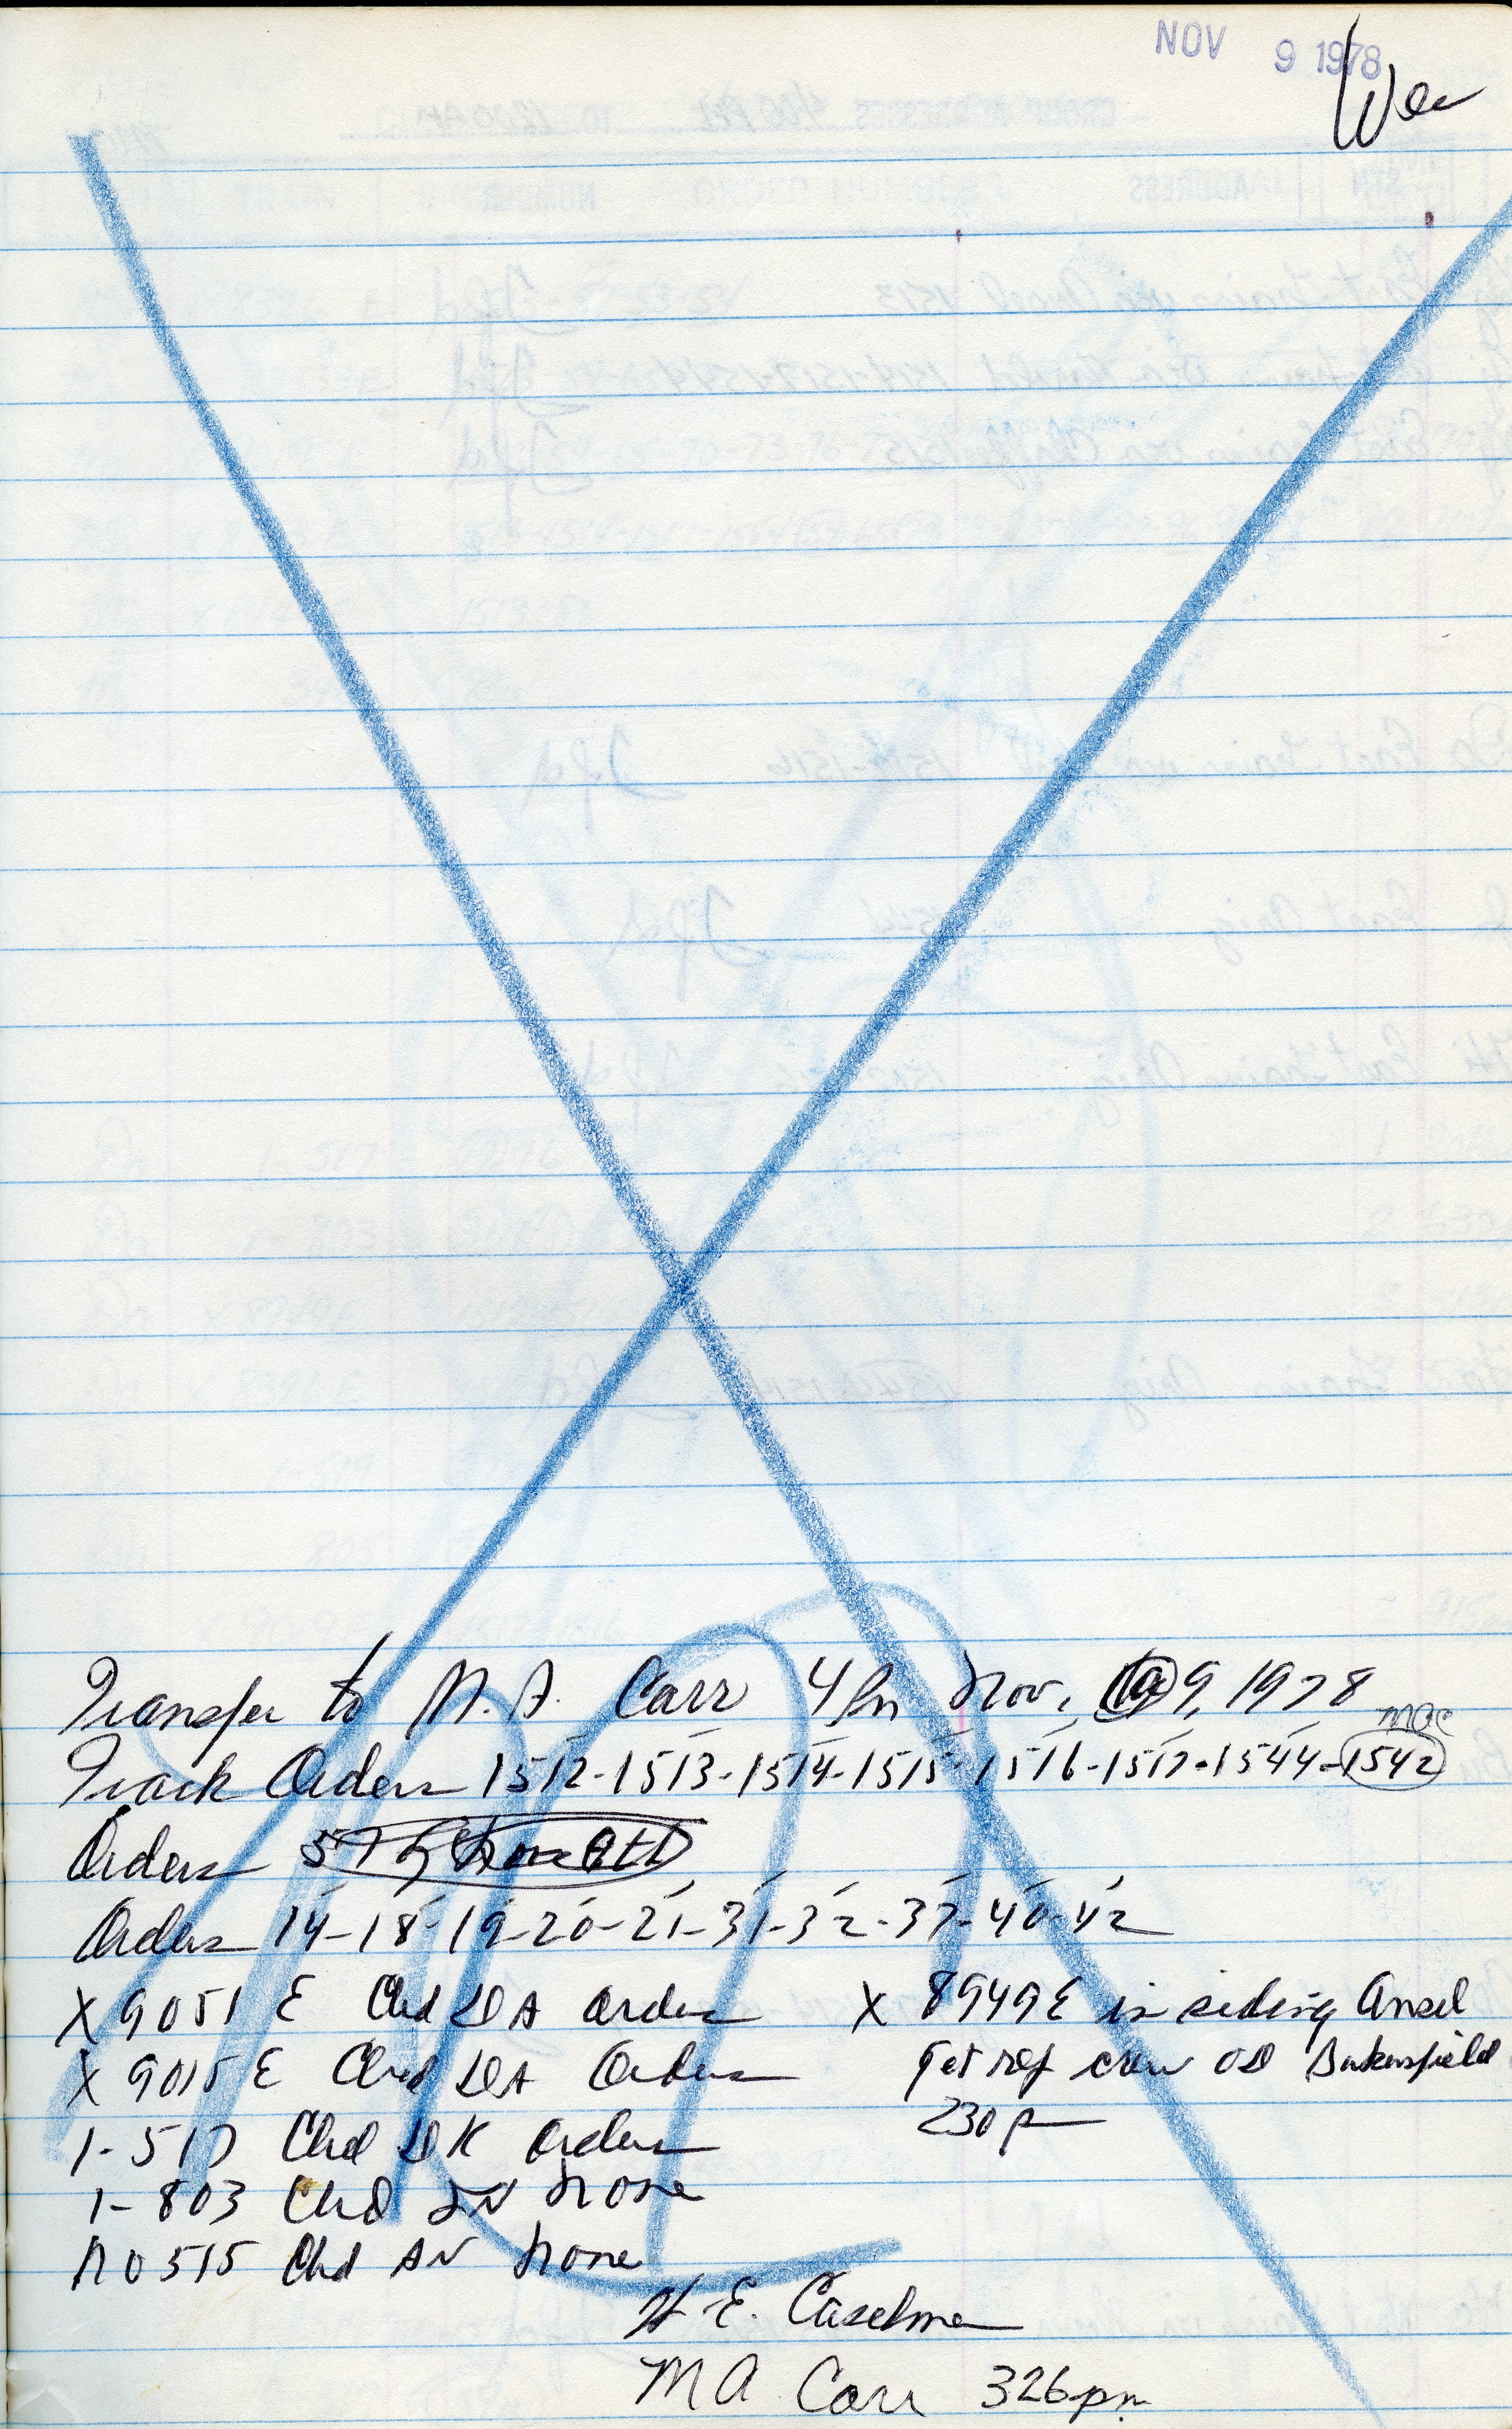 NOV 9 1978
Transfer to M. A. Carr 4 Pm Nov. 9, 1978
Track Orders 1512-1513-1514-1515-1516-1517-1544-1542
Orders
Orders 14-18-19-20-21-31-32-37-40-42
X 9051 E Clrd DA Orders
X 9015 E Clrd DA Orders
1-517 Clrd DK Orders
1-803 Clrd none
NO 515 Clrd none
X 8949 E in siding Ansel
get crew OD Bakersfield
230 p
H. E. Caselman
M A Carr 326 pm